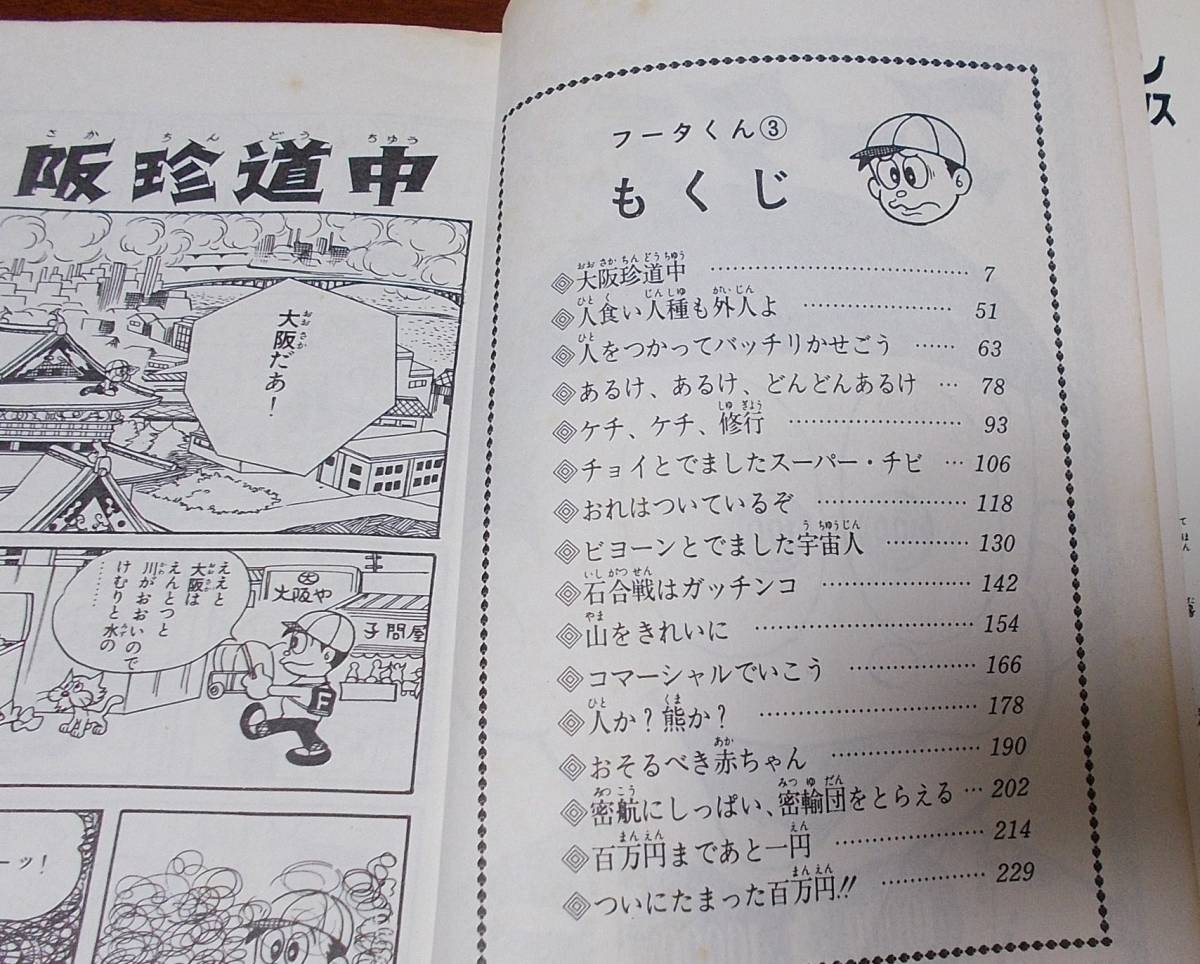 フータくん③
もくじ
大阪珍道中 7
人食い人種も外人よ 51
人をつかってバッチリかせごう 63
あるけ、あるけ、どんどんあるけ 78
ケチ、ケチ、修行 93
チョイとでましたスーパー・チビ 106
おれはついているぞ 118
ビヨーンとでました宇宙人 130
石合戦はガッチンコ 142
山をきれいに 154
コマーシャルでいこう 166
人か？熊か？ 178
おそるべき赤ちゃん 190
密航にしっぱい、密輸団をとらえる 202
百万円まであと一円 214
ついにたまった百万円!! 229
さか ちん どう ちゅう
阪珍道中
大阪だあ！
ええと
大阪は
えんとつと
川がおおいので
けむりと水の
………
大阪や
子問屋
F
ーッ！
ン
ス
てほん